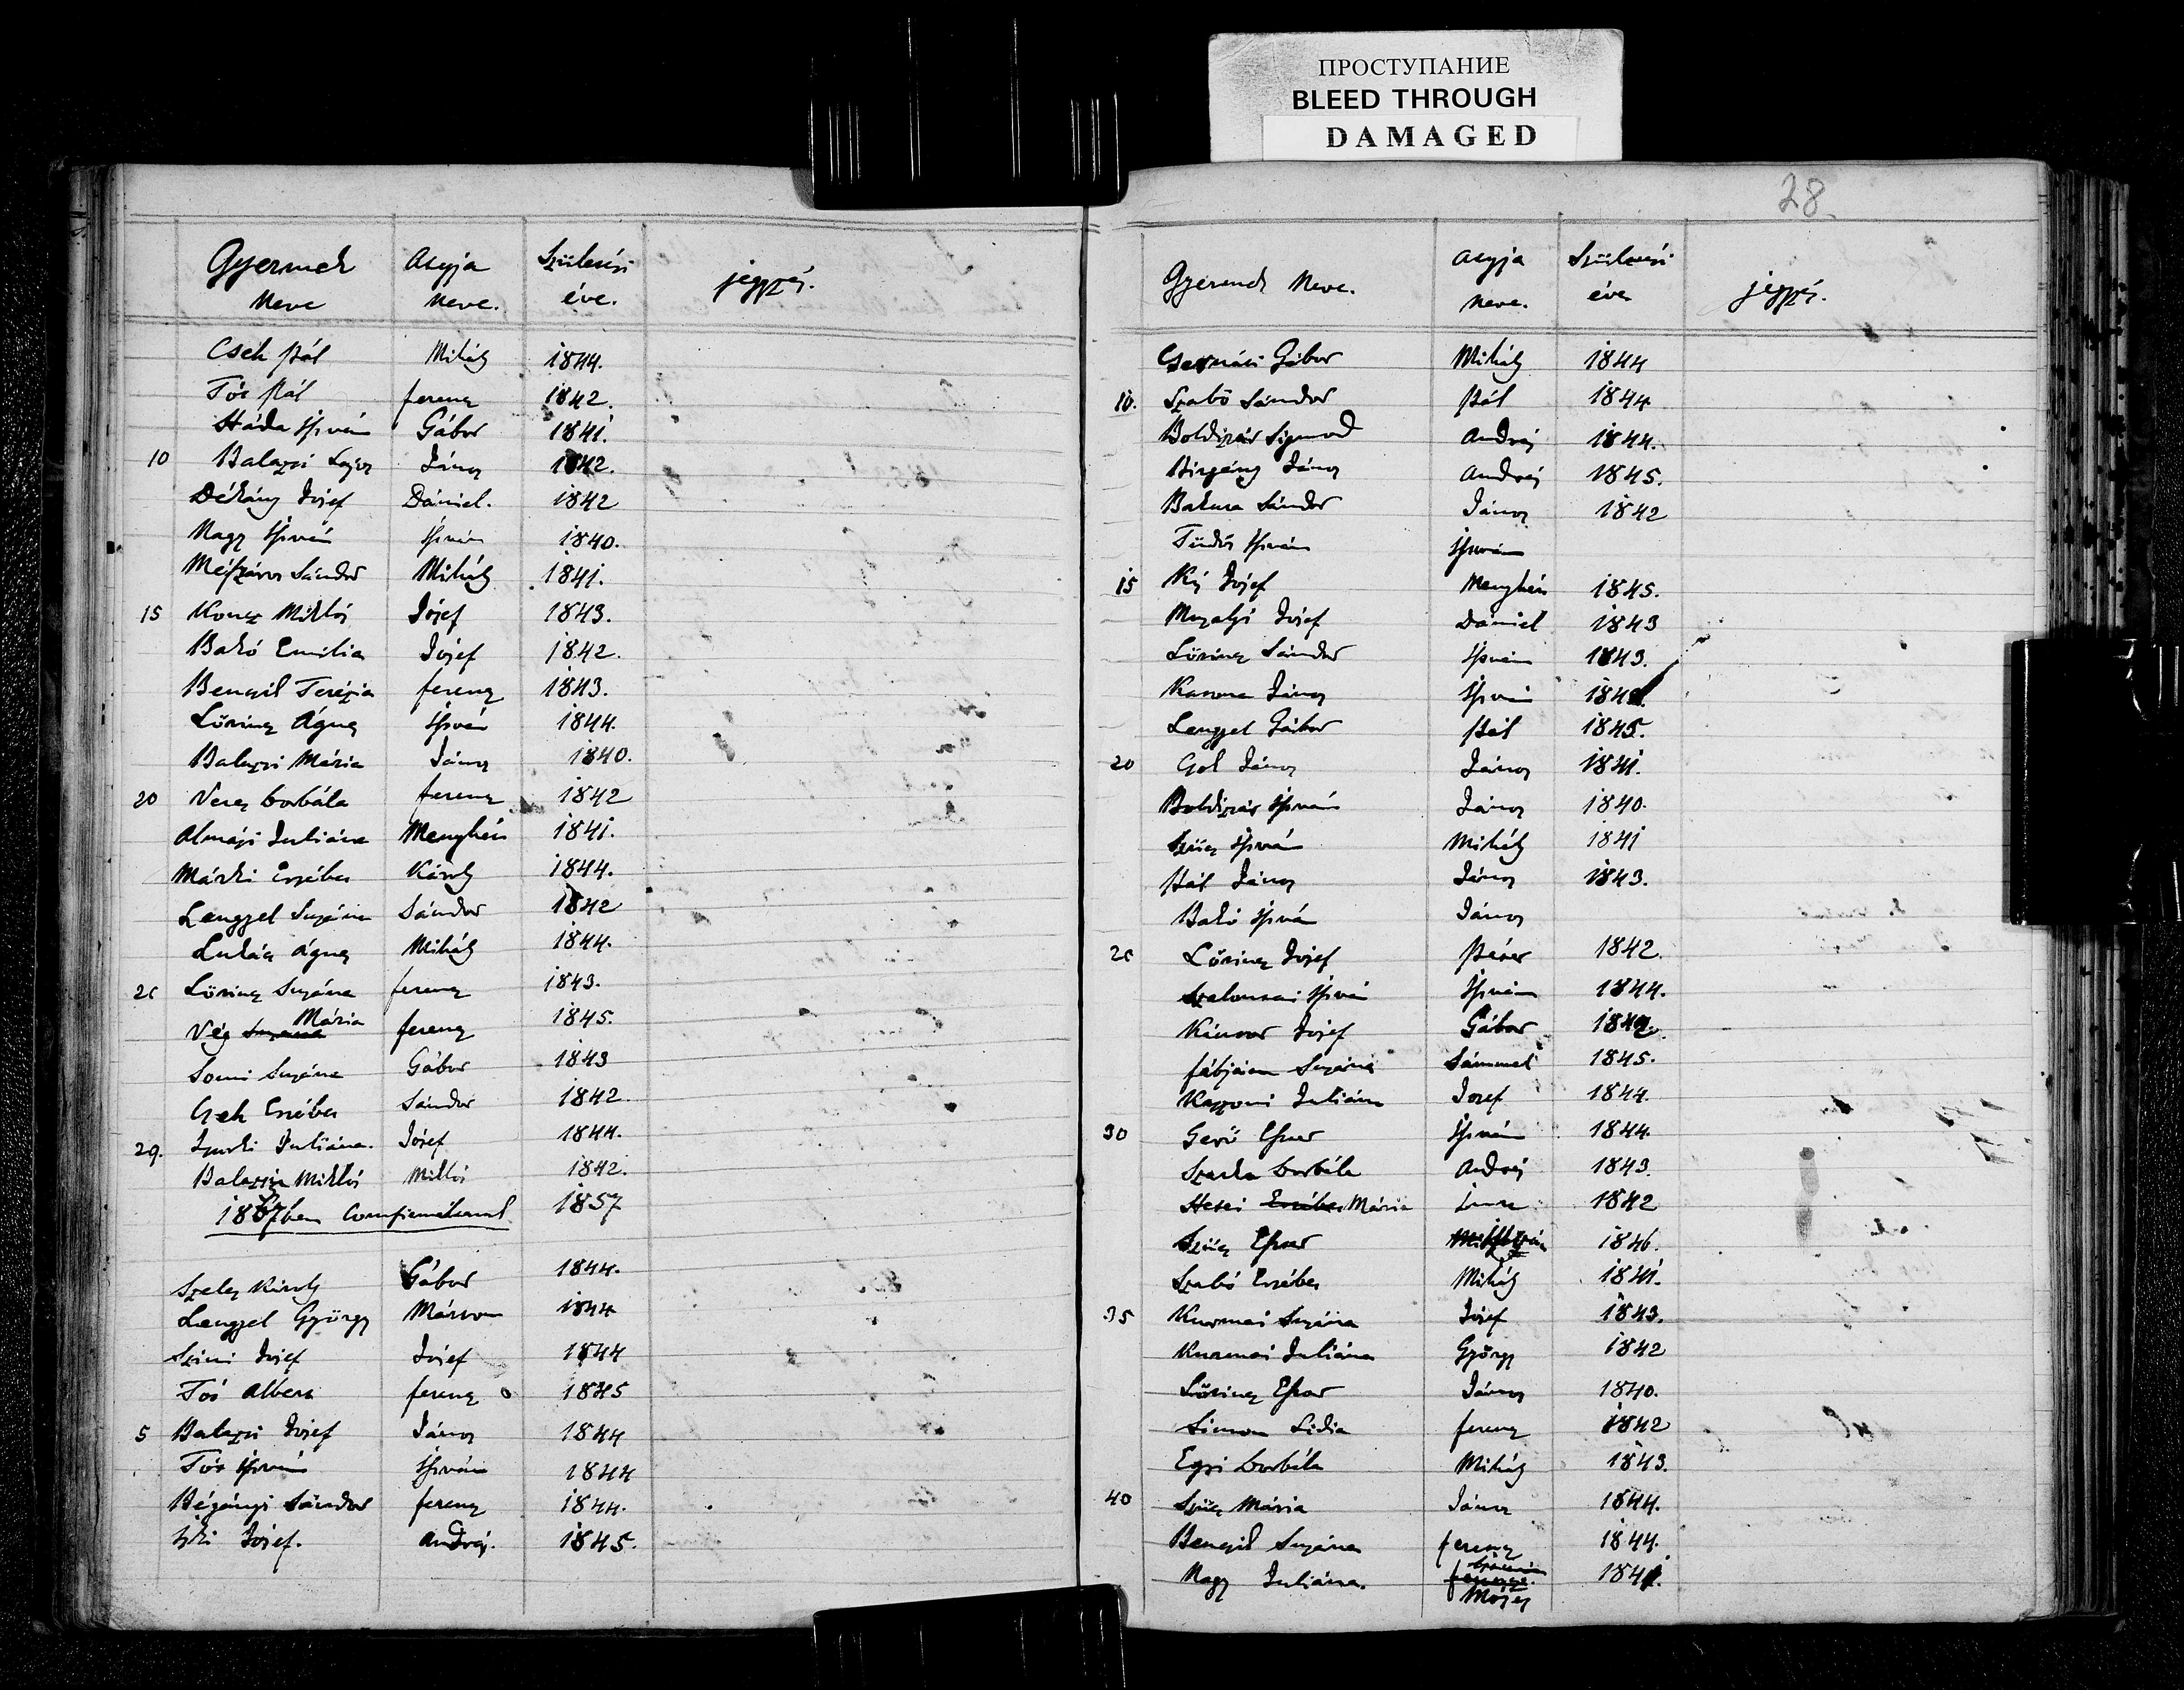 ПРОСТУПАНИЕ
BLEED THROUGH
DAMAGED
28.
Gyermek neve Atyja neve. Születési éve. jegyzés.
Cseh Pál Mihály 1844.
Tót Pál ferenz 1842.
Háda István Gábor 1841.
10 Balazsi Lajos János 1842.
Dékány Jósef Dániel. 1842
Nagy István István 1840.
Mészáros Sándor Mihály 1841.
15 Koncz Miklós Jósef 1843.
Bakó Emilia Jósef 1842.
Benczil Terézia ferenz 1843.
Lőrincz Ágnes István 1844.
Balazsi Mária János 1840.
20 Veres borbála ferenz 1842
Almási Juliána Menyhért 1841.
Márki Erzébet Károly 1844.
Lengyel Suzána Sándor 1842
Lukács Ágnes Mihály 1844.
25 Lőrincz Suzána ferenz 1843.
Vég Mária ferenz 1845.
Somi Suzána Gábor 1843
Cseh Erzébet Sándor 1842
29. Juliána. Jósef 1844.
Miklós Miklós 1842.
1857ben 1857
Szeles Károly Gábor 1844.
Lengyel György Márton 1844
Szimi Jósef Jósef 1844
Tót Albert ferenz 1845
5 Balazsi Jósef János 1844
Tót István István 1844
Bégányi Sándor ferenz 1844.
Jósef. András. 1845.
Gyermek Neve. Atyja neve. Születési éve jegyzés.
Gábor Mihály 1844
10. Szabó Sándor Pál 1844
Boldizsár Sigmond András 1844.
János András 1845.
Bakura Sándor János 1842
Tüdős István István
15 Kis Jósef Menyhért 1845.
Jósef Dániel 1843
Lőrincz Sándor István 1843.
Katona János István
Lengyel Gábor Pál 1845.
20 Gál János János 1841.
Boldizsár István János 1840.
Szűcs István Mihály 1841
Pál János János 1843.
Bakó István János
25 Lőrincz Jósef Péter 1842.
Szalontai István István 1844.
Kántor Jósef Gábor
fábján Suzána Sámuel 1845.
Juliána Josef 1844.
30 Gerő Eszter István 1844.
Szarka borbála András 1843.
Hetei Erzébet Mária Imre 1842
Szűcs Eszter 1846.
Szabó Erzébet Mihály 1841.
35 Kurmai Suzána Jósef 1843.
Kurmai Juliána György 1842
Lőrincz Eszter János 1840.
Simon Lidia ferenz 1842
Egri borbála Mihály 1843.
40 Szűcs Mária János 1844.
Benczil Suzána ferenz 1844.
Nagy Juliána. Mózes